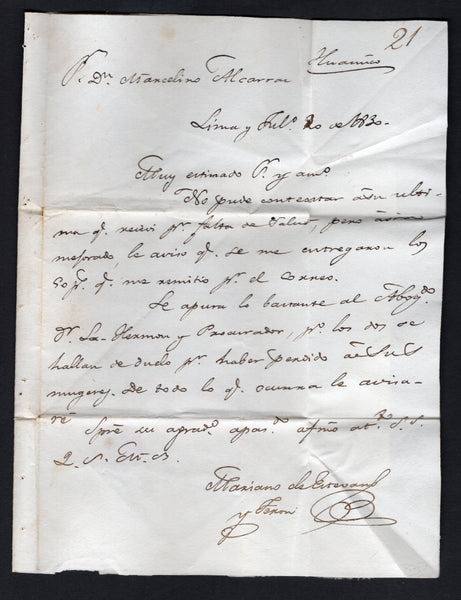 21
Huanuco
Sr. Dn. Marcelino Alcarraz
Lima y Jul.o 20 de 1830.
Muy estimado Sr. y am.o
No pude contestar a su ulti-
ma q.e recivi pr. falta de salud, pero
mejorado, le aviso q.e se me entregaron los
50 ps. q.e me remitio pr. el correo.
Se apura lo bastante al Abog.o
Dr. La-Hermosa y Procurador, po. los dos se
hallan de duelo pr. haber perdido a sus
mugeres. De todo lo q.e ocurra le avisa-
ré
Spre. su agrad.o apas.o afmo at.o S. S.
Q. S. M. B.
Mariano de
y